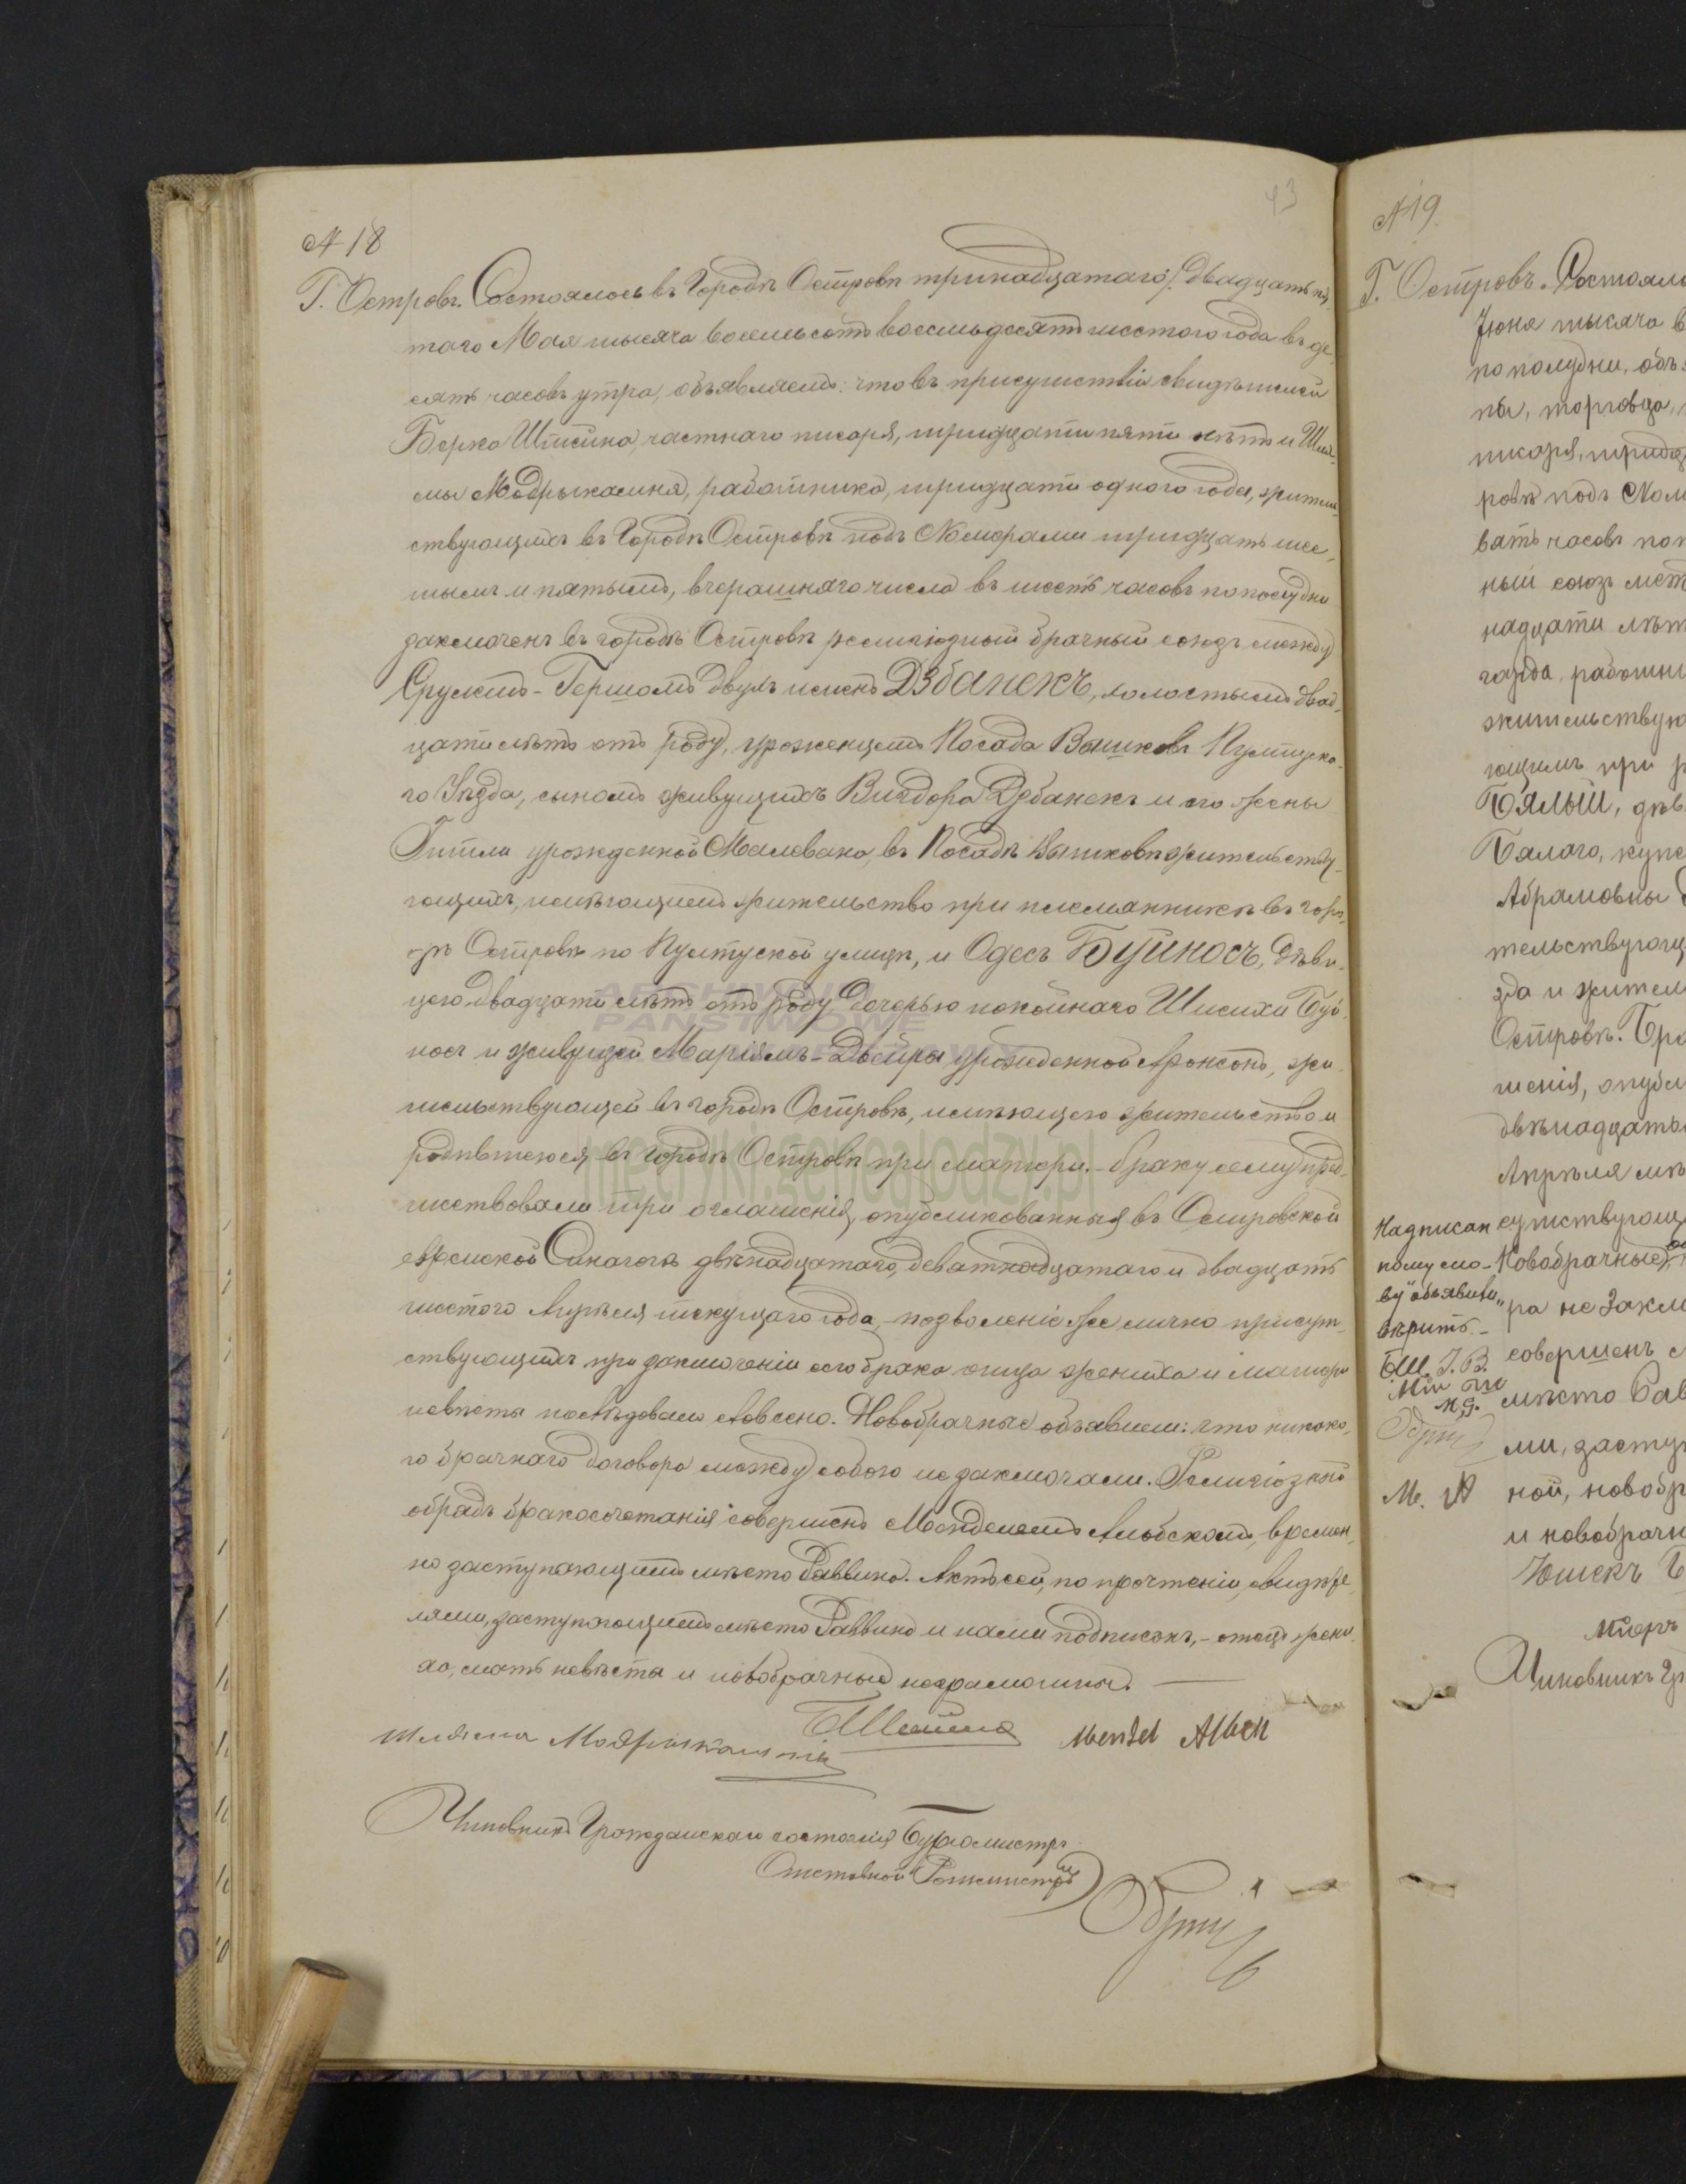 43
№ 18
Г. Островъ. Состоялось въ Городѣ Островѣ тринадцатаго/двадцать пя-
таго Мая тысяча восемьсотъ восемьдесятъ шестого года въ де-
сять часовъ утра, объявляемъ: что въ присутствіи свидѣтелей
Берка Штейна, частнаго писаря, тридцати пяти лѣтъ и Шля-
мы Модрыкамня, работника, тридцати одного года, житель-
ствующихъ въ Городѣ Островѣ подъ Номерами тридцать
и пятымъ, вчерашняго числа въ шесть часовъ пополудни
заключенъ въ городѣ Островѣ религіозный брачный союзъ между
Срулемъ-Гершомъ двухъ именъ Дзбанекъ, холостымъ двад-
цати лѣтъ отъ роду, уроженцемъ Посада Вышковъ Пултуска-
го Уѣзда, сыномъ живущихъ Вигдора Дзбанекъ и его жены
Гитли урожденной Малевана, въ Посадѣ Вышковѣ жительству-
ющихъ, имѣющимъ жительство при племянникѣ въ горо-
дѣ Островѣ по Пултуской улицѣ, и Одесъ Буйносъ, дѣви-
цею двадцати лѣтъ отъ роду дочерью покойнаго Шлимхи Буй-
носъ и живущей Маріямъ-Двейры урожденной Аронсонъ, жи-
тельствующей въ городѣ Островѣ, имѣющею жительство и
родившеюся въ городѣ Островѣ при матери. - браку сему пред-
шествовали три оглашенія, опубликованныя въ Островской
еврейской Синагогѣ двѣнадцатаго, девятнадцатаго и двадцать
шестого Апрѣля текущаго года, - позволеніе же лично присут-
ствующихъ при заключеніи сего брака отца жениха и матери
невѣсты послѣдовало словесно. Новобрачные объявили: что никако-
го брачнаго договора между собою не заключали. Религіозный
обрядъ бракосочетанія совершенъ Менделемъ Альбекомъ, времен-
но заступающимъ мѣсто Раввина. Актъ сей, по прочтеніи, свидѣте-
лями, заступающимъ мѣсто Раввина и нами подписанъ, - отецъ жени-
ха, мать невѣсты и новобрачные неграмотны.
Шляма Модрыкамень БШтейнъ Mendel Albek
Чиновникъ Гражданскаго состоянія Бургомистръ
Отставной Ротмистръ
№ 19.
Г. Островъ. Состояло
Іюня тысяча в
по полудни, объ
пы, торговца,
шкаря, тридц
ровѣ подъ Ном
вать часовъ поп
ный союзъ меж
надцати лѣт
гарда, работни
жительствую
ющимъ при р
Бялый, дѣв
Бялаго, купе
Абрамовны
тельствующ
зда и жител
Островѣ. Бра
шенія, опубл
двѣнадцаты
Апрѣля мѣ
сутствующ
Новобрачные
ра не заклю
совершенъ
мѣсто Рав
ми, заступ
ной, новобр
и новобрачн
Юшекъ
Чиновникъ Гр
Надписан
ному сло-
ву "объявили"
вѣрить. -
БШ. І. В.
М. А